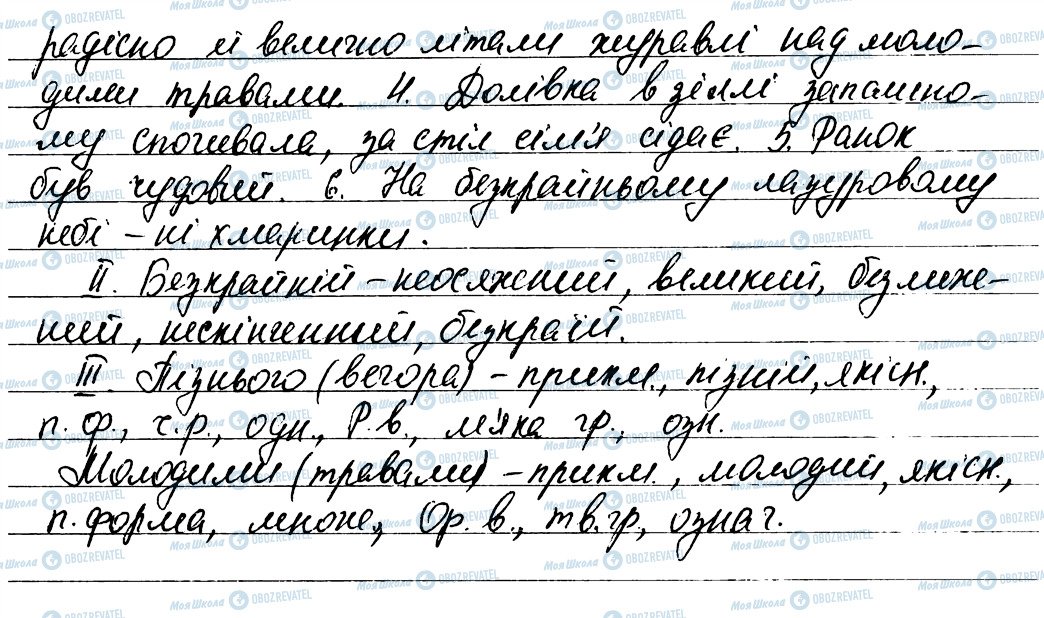 радісно й велично літали журавлі над моло-
дими травами. 4. Долівка в зіллі запашно-
му спочивала, за стіл сім'я сідає. 5. Ранок
був чудовий. 6. На безкрайньому лазуровому
небі – ні хмаринки.
II. Безкрайній – неосяжний, великий, безмеж-
ний, нескінченний, безкраїй.
III. Пізнього (вечора) – прикм., пізній, якісн.,
п. ф., ч.р., одн., Р.в., м'яка гр., озн.
Молодими (травами) – прикм., молодий, якісн.,
п. форма, множ., Ор. в., тв. гр., означ.